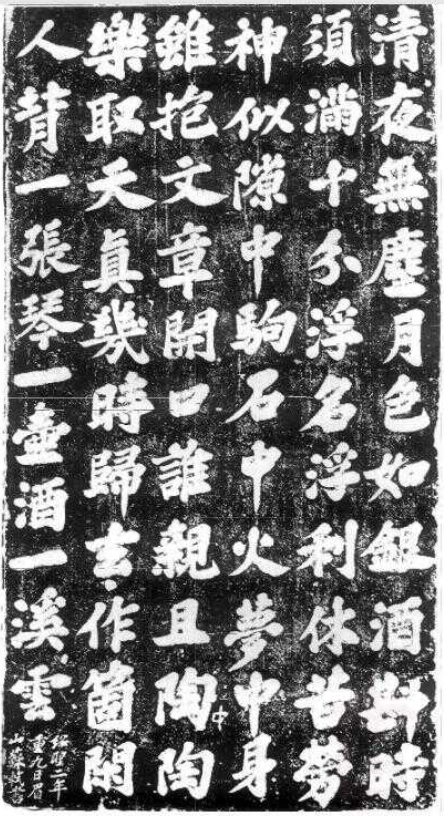 清夜無塵月色如銀酒斟時
須滿十分浮名浮利休苦勞
神似隙中駒石中火夢中身
雖抱文章開口誰親且陶陶
樂取天真幾時歸去作箇閑
人背一張琴一壺酒一溪雲
紹聖二年
重九日眉
山蘇軾書